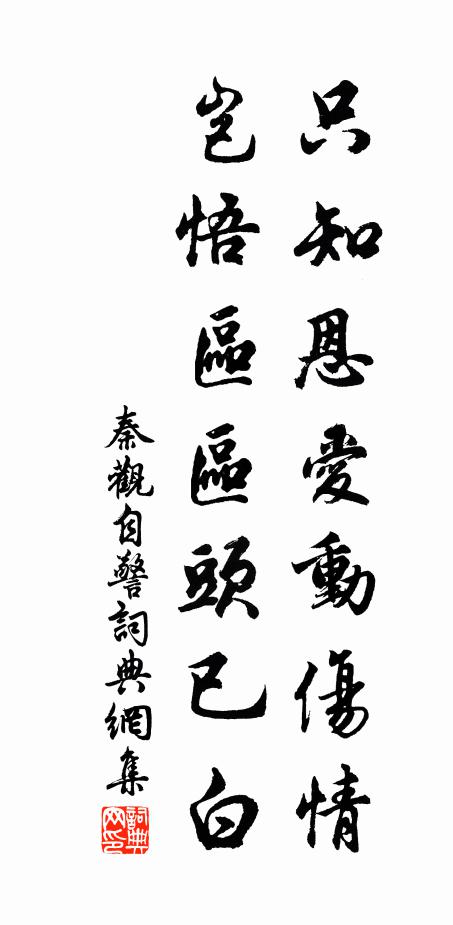 只知恩愛動傷情
豈悟區區頭已白
秦觀自警詞典網集
詞典網印